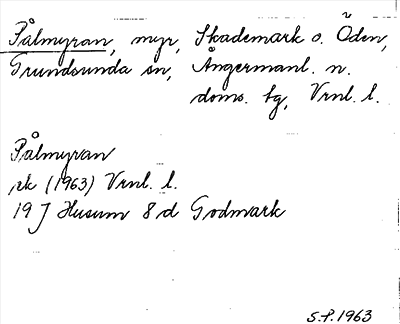 Pålmyran, myr, Skademark o. Öden,
Grundsunda sn, Ångermanl. n.
doms. tg, Vrnl. l.
Pålmyran
ek (1963) Vrnl. l.
19 J Husum 8 d Godmark
S.P. 1963